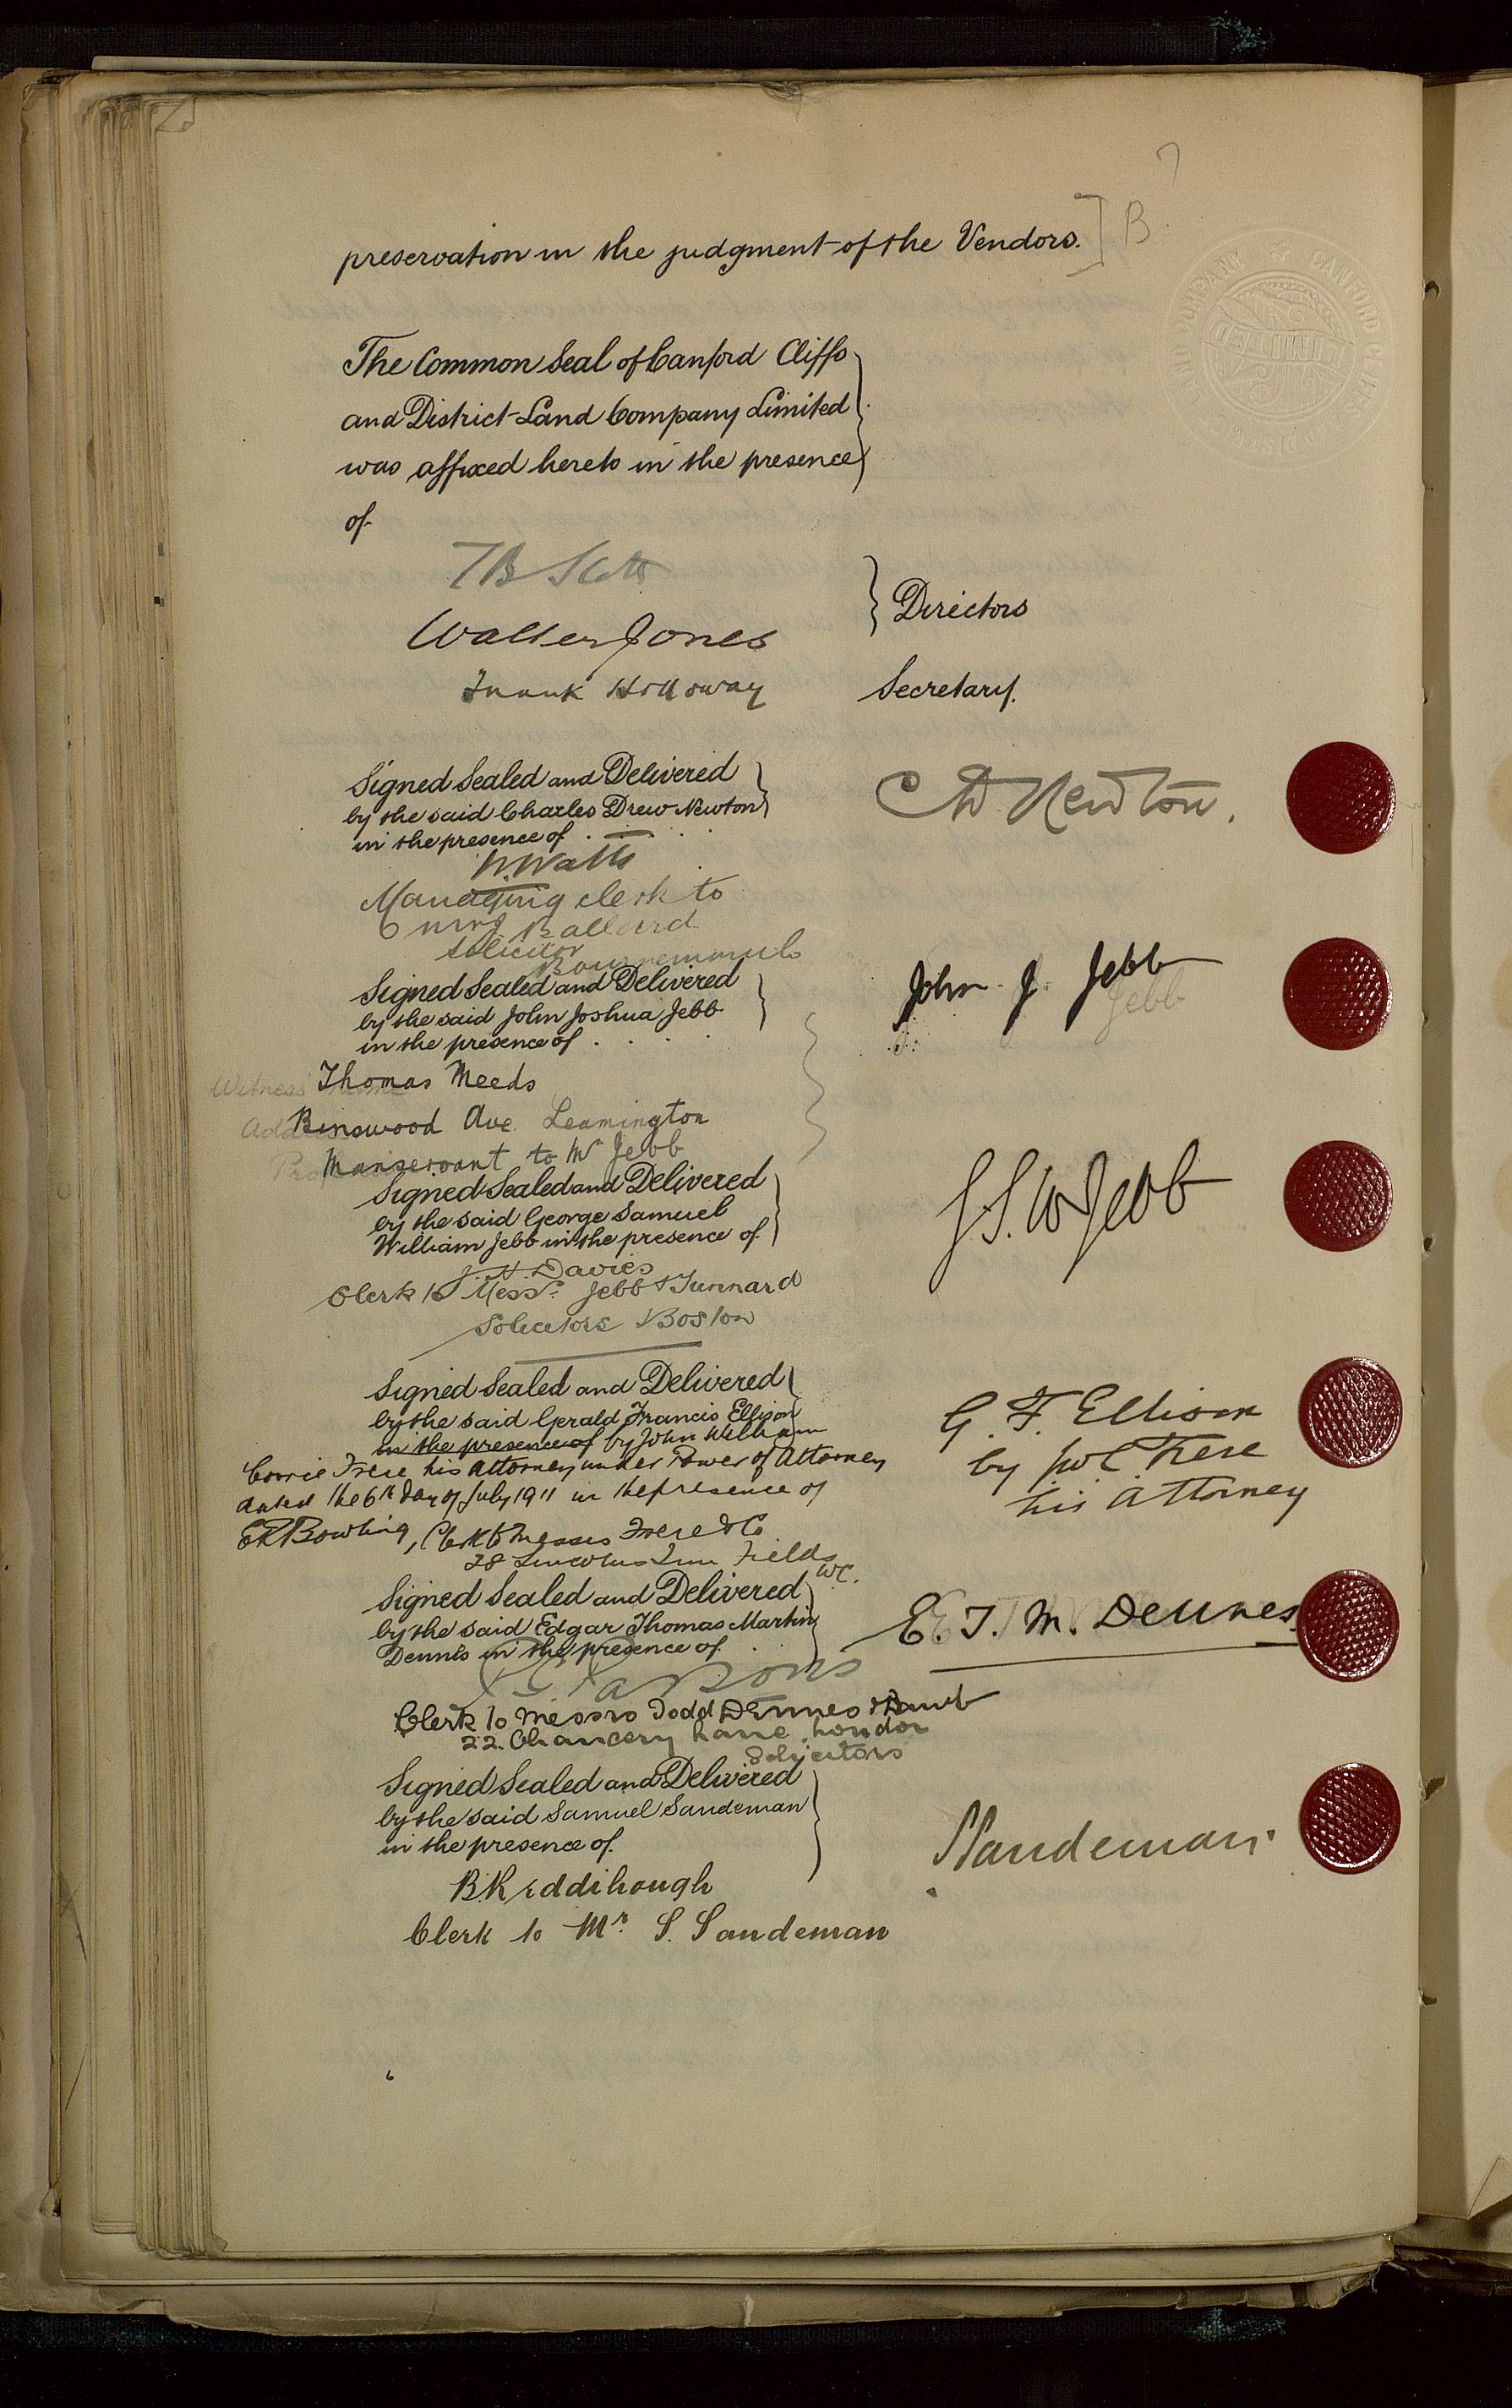 preservation in the judgment of the Vendors.] B
7
The Common Seal of Canford Cliffs
and District Land Company Limited
was affixed hereto in the presence
of
COMPANY OF CANFORD CLIFFS
T B Scott
Walter Jones
} Directors
Frank Holloway
Secretary.
Signed Sealed and Delivered
by the said Charles Drew Newton
in the presence of
C D Newton.
W. Watts
Managing clerk to
Ballard
Solicitor
Bournemouth
Signed Sealed and Delivered
by the said John Joshua Jebb
in the presence of
John J. Jebb
Jebb
Witness Thomas Meeds
Address Binswood Ave. Leamington
Manservant to Mr Jebb
Signed Sealed and Delivered
by the said George Samuel
William Jebb in the presence of
G. S. W Jebb
J. H. Davies
Clerk to Messrs. Jebb & Tunnard
Solicitors Boston
Signed Sealed and Delivered
by the said Gerald Francis Ellison
in the presence of by John William
Corrie Frere his Attorney under Power of Attorney
dated the 6th day of July 1911 in the presence of
G. F. Ellison
by J W C Frere
his Attorney
E R Bowling, Clerk to Messrs Frere & Co
28 Lincolns Inn Fields
W.C.
Signed Sealed and Delivered
by the said Edgar Thomas Martin
Dennes in the presence of
E. T. M. Dennes.
Parsons
Clerk to Messrs Todd Dennes & Lamb
22. Chancery Lane London
Solicitors
Signed Sealed and Delivered
by the said Samuel Sandeman
in the presence of
S Sandeman.
B. Reddihough
Clerk to Mr. S. Sandeman